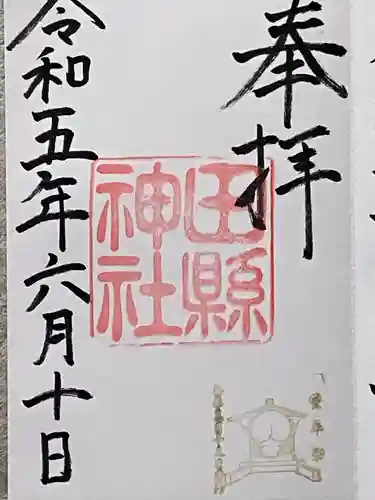 奉拝
田縣
神社
令和五年六月十日